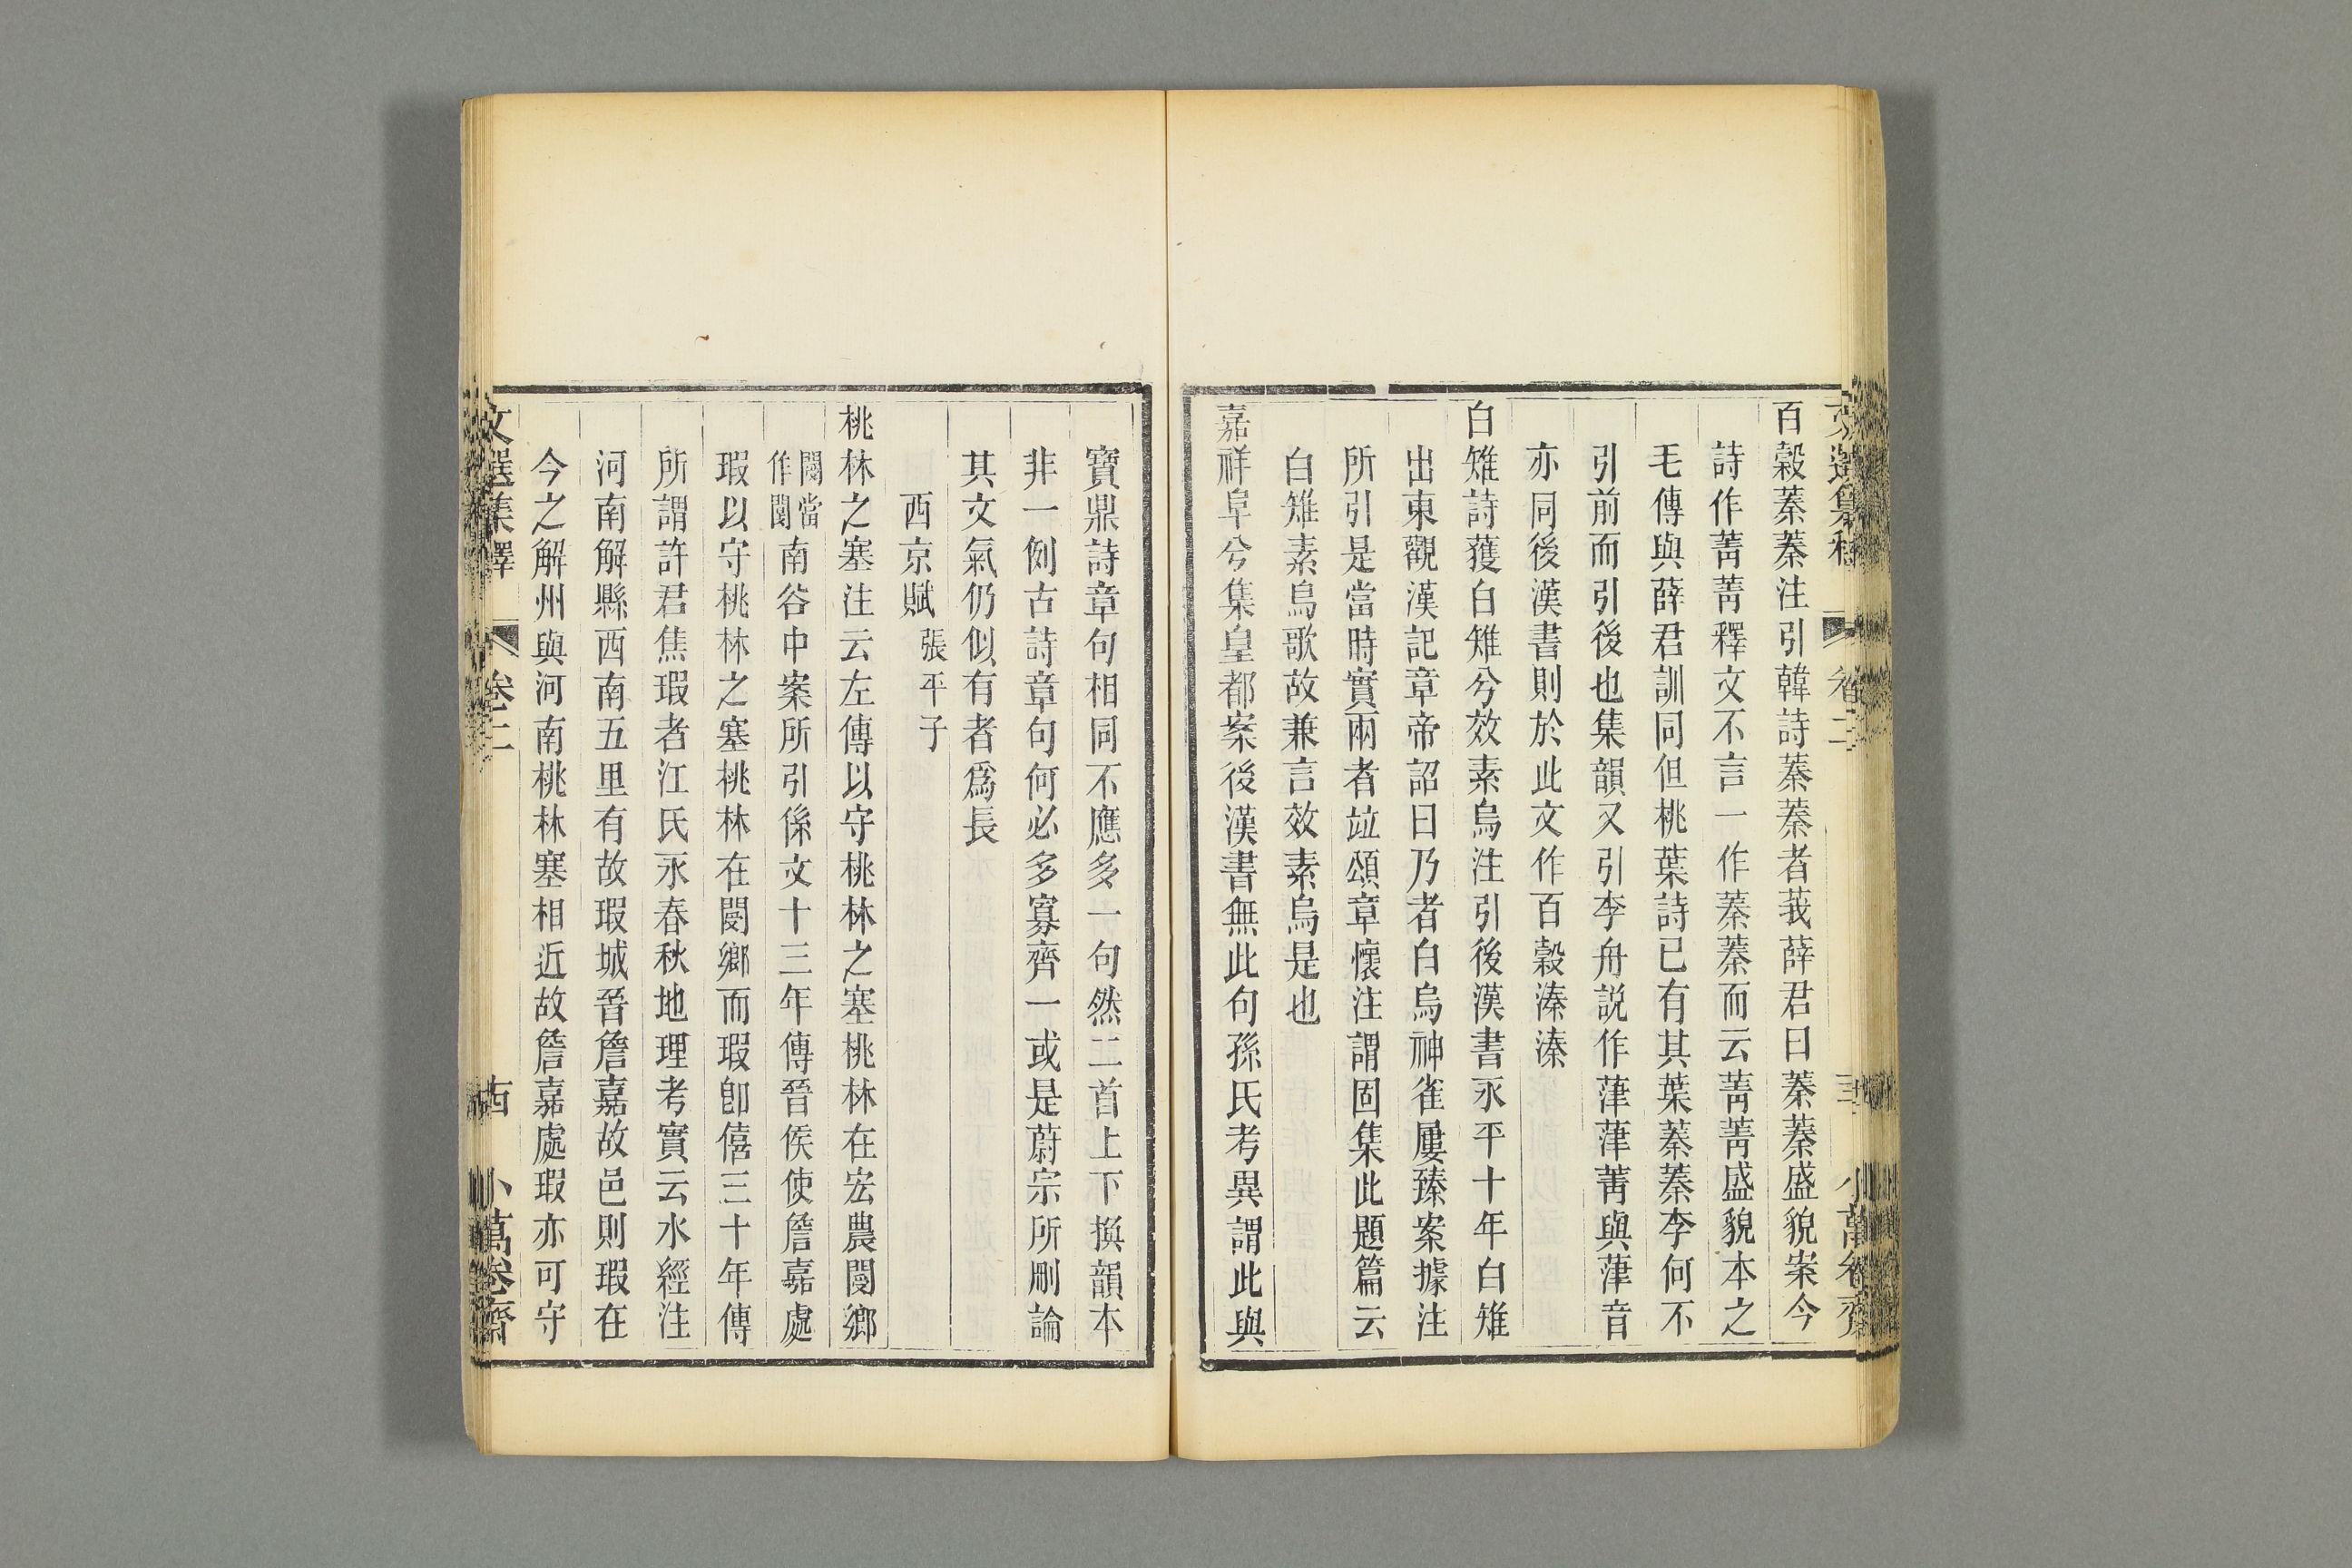 文選集釋 卷二 三 小萬卷齋
百穀蓁蓁注引韓詩蓁蓁者莪薛君曰蓁蓁盛貌案今
詩作菁菁釋文不言一作蓁蓁而云菁菁盛貌本之
毛傳與薛君訓同但桃葉詩已有其葉蓁蓁李何不
引前而引後也集韻又引李舟説作葏葏菁與葏音
亦同後漢書則於此文作百穀溱溱
白雉詩獲白雉兮效素烏注引後漢書永平十年白雉
出東觀漢記章帝詔曰乃者白烏神雀屢臻案據注
所引是當時實兩者竝頌章懷注謂固集此題篇云
白雉素烏歌故兼言效素烏是也
嘉祥阜兮集皇都案後漢書無此句孫氏考異謂此與
寶鼎詩章句相同不應多一句然二首上下換韻本
非一例古詩章句何必多寡齊一或是蔚宗所刪論
其文氣仍似有者爲長
西京賦 張平子
桃林之塞注云左傳以守桃林之塞桃林在宏農閿鄉
閿當作閺南谷中案所引係文十三年傳晉侯使詹嘉處
瑕以守桃林之塞桃林在閿鄉而瑕卽僖三十年傳
所謂許君焦瑕者江氏永春秋地理考實云水經注
河南解縣西南五里有故瑕城晉詹嘉故邑則瑕在
今之解州與河南桃林塞相近故詹嘉處瑕亦可守
文選集釋 卷二 酉 小萬卷齋